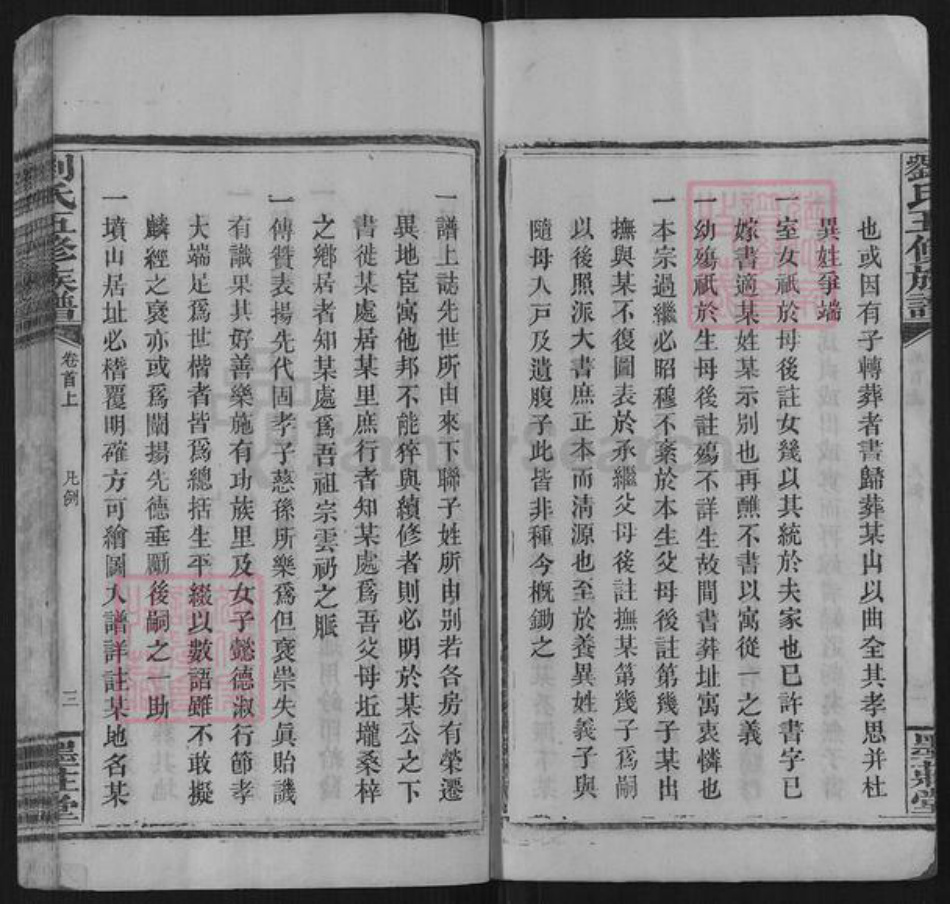 劉氏五修族譜
墨莊堂
也或因有子轉葬者書歸葬某山以曲全其孝思并杜
異姓爭端
一室女祇於母後註女幾以其統於夫家也已許書字已
嫁書適某姓某示別也再醮不書以寓從一之義
一幼殤祇於生母後註殤不詳生故間書葬址寓哀憐也
一本宗過繼必昭穆不紊於本生父母後註第幾子某出
撫與某不復圖表於承繼父母後註撫某第幾子爲嗣
以後照派大書庶正本而清源也至於養異姓義子與
隨母入戶及遺腹子此皆非種今概鋤之
一譜上誌先世所由來下聯子姓所由別若各房有榮遷
異地宦寓他邦不能猝與續修者則必明於某公之下
書徙某處居某里庶行者知某處爲吾父母坵壠桑梓
之鄉居者知某處爲吾祖宗雲礽之脈
一傳贊表揚先代固孝子慈孫所樂爲但褒崇失眞貽譏
有識果其好善樂施有功族里及女子懿德淑行節孝
大端足爲世楷者皆爲總括生平綴以數語雖不敢擬
麟經之褒亦或爲闡揚先德垂勵後嗣之一助
一墳山居址必稽覆明確方可繪圖入譜詳註某地名某
劉氏五修族譜
卷首上
凡例
三
墨莊堂
FamilySearch